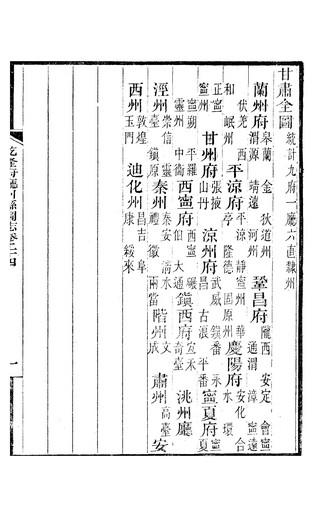 甘肅全圖 統計九府一廳六直隸州
蘭州府 皋蘭 金 狄道州 渭源 靖遠 河州 鞏昌府 隴西 安定 會寧 通渭 漳 寧遠
伏羌 西和 岷州 平涼府 平涼 靜寧州 華亭 隆德 固原州 慶陽府 安化 合水 環
正寧 寧州 甘州府 張掖 山丹 涼州府 武威 鎮番 永昌 古浪 平番 寧夏府 寧夏
寧朔 平羅 靈州 中衛 西寧府 西寧 碾伯 大通 鎮西府 宜禾 奇臺 洮州廳
涇州 崇信 靈臺 鎮原 秦州 秦安 清水 禮 徽 兩當 階州 文 成 肅州 高臺 安
西州 敦煌 玉門 迪化州 昌吉 阜康 綏來
乾隆府廳州縣圖志卷二十四 一